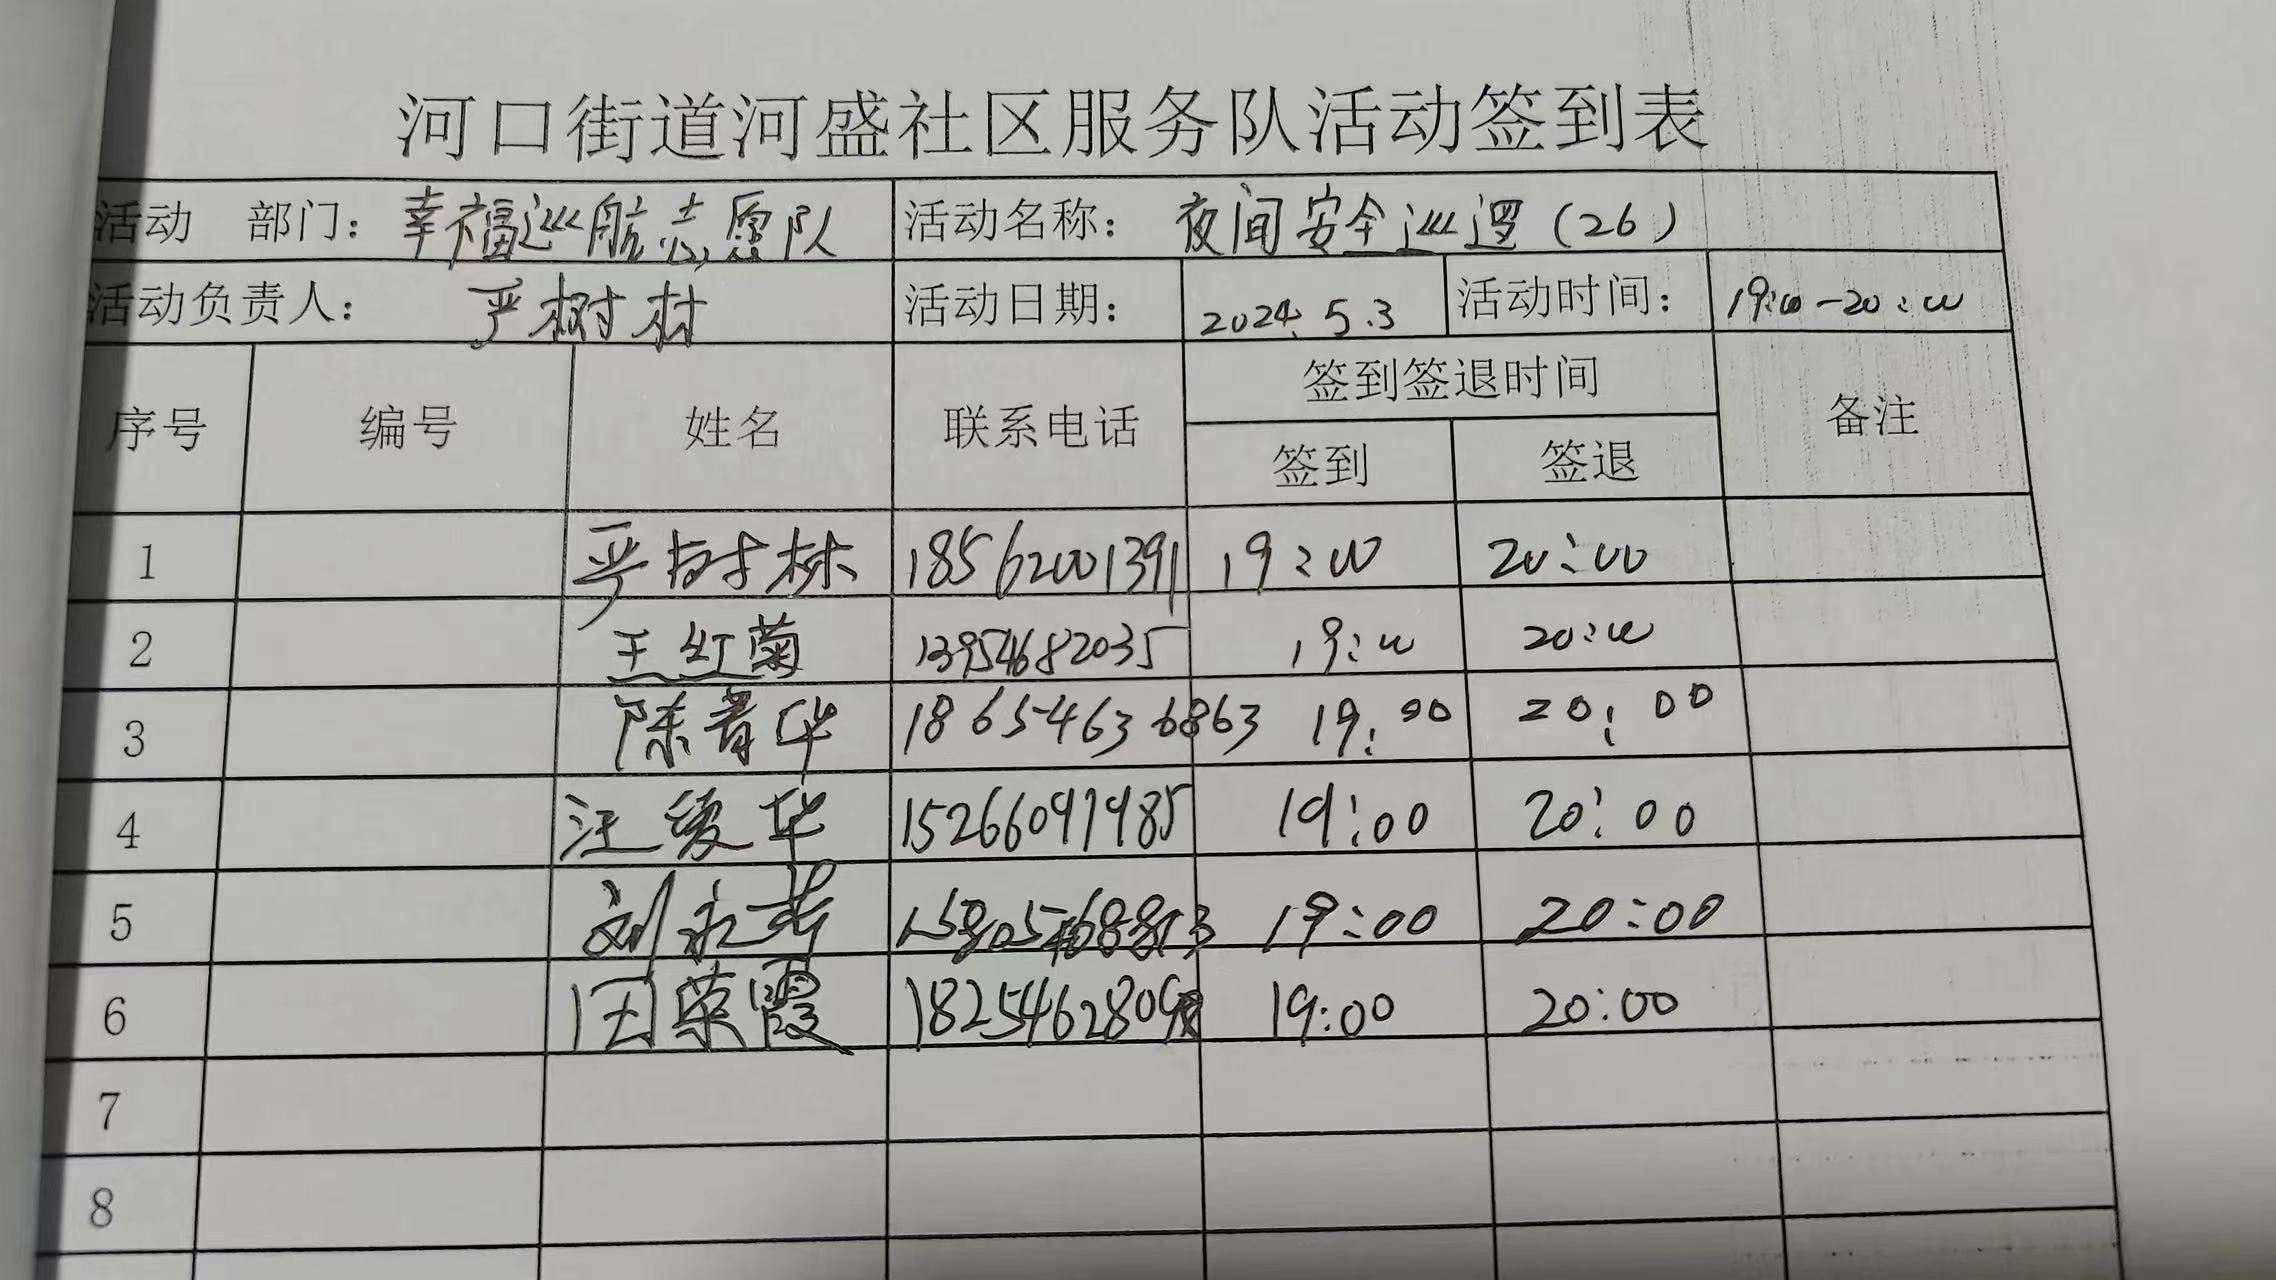 河口街道河盛社区服务队活动签到表
活动 部门: 幸福巡航志愿队 活动名称: 夜间安全巡逻(26)
活动负责人: 严树林 活动日期: 2024.5.3 活动时间: 19:00-20:00
序号 编号 姓名 联系电话 签到签退时间 备注
签到 签退
1 严树林 18562001391 19:00 20:00
2 王红菊 13954682035 19:00 20:00
3 陈青华 18654636863 19:00 20:00
4 汪爱华 15266091985 19:00 20:00
5 刘永芳 19:00 20:00
6 田荣霞 19:00 20:00
7
8